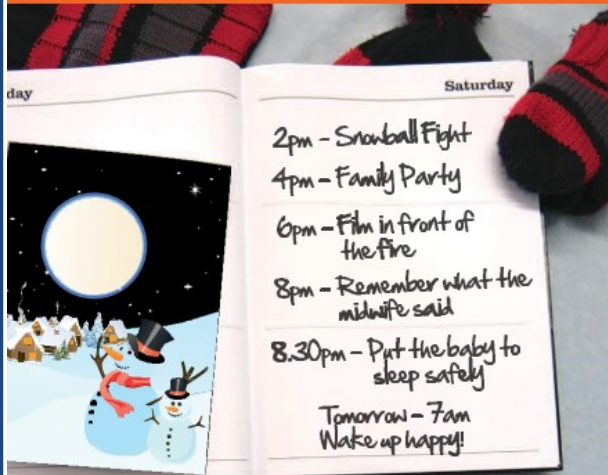 day
Saturday
2pm – Snowball Fight
4pm – Family Party
6pm – Film in front of
the fire
8pm – Remember what the
midwife said
8.30pm – Put the baby to
sleep safely
Tomorrow – 7am
Wake up happy!